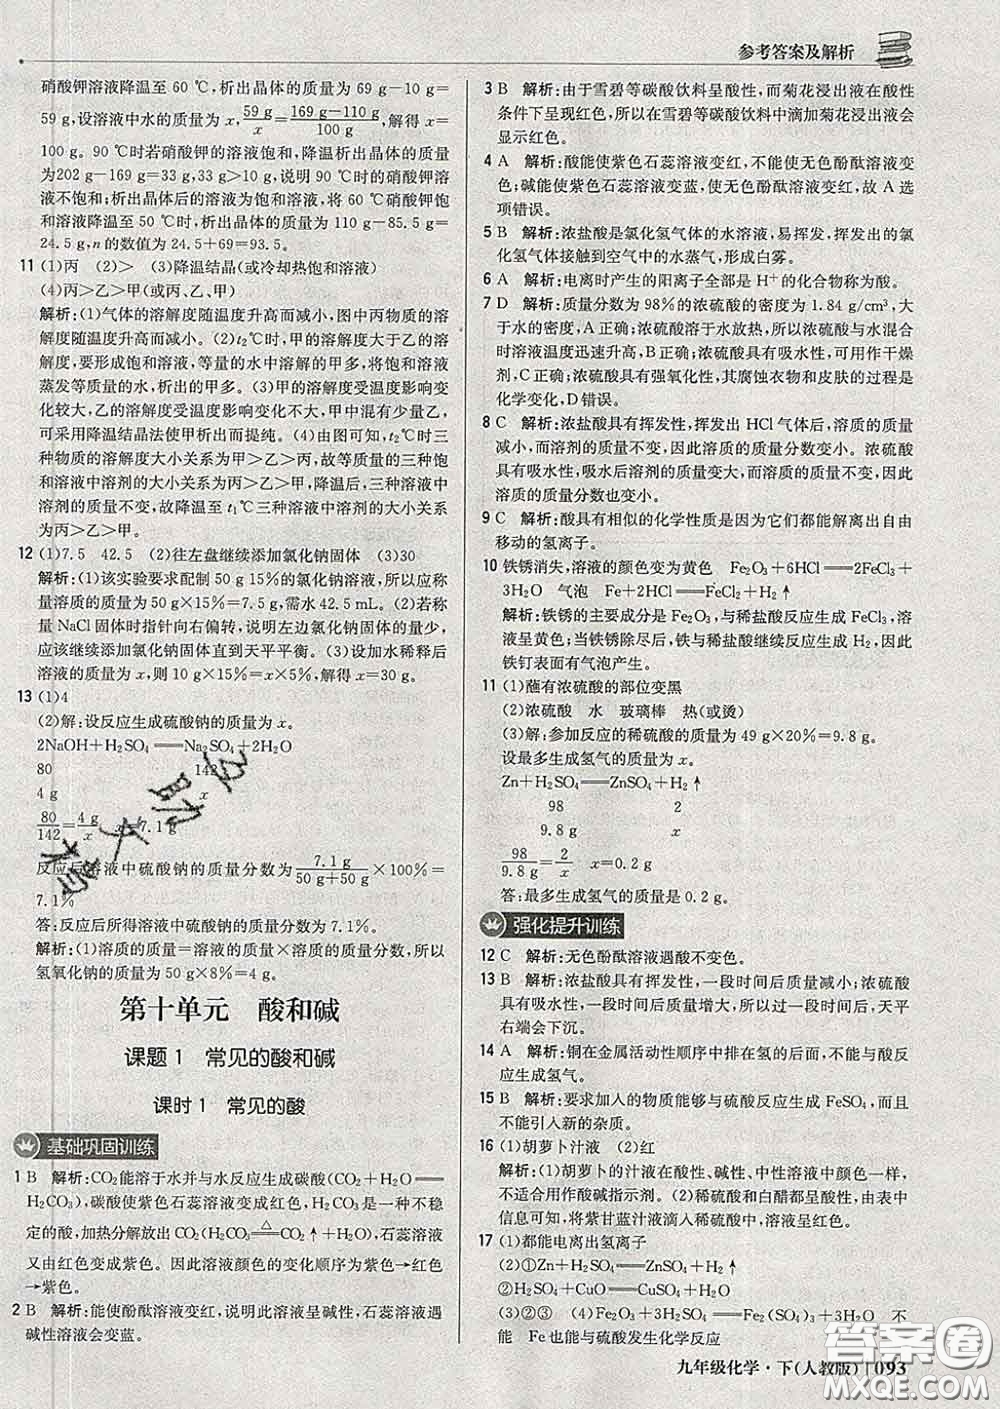 参考答案及解析
硝酸钾溶液降温至 60 ℃,析出晶体的质量为 69 g−10 g=
59 g,设溶液中水的质量为 x,59 g/x=(169 g−110 g)/100 g,解得 x=
100 g。90 ℃时若硝酸钾的溶液饱和,降温析出晶体的质量
为202 g−169 g=33 g,33 g>10 g,说明 90 ℃时的硝酸钾溶液
不饱和;析出晶体后的溶液为饱和溶液,将 60 ℃的硝酸钾饱
和溶液降温至 50 ℃时,析出晶体的质量为 110 g−85.5 g=
24.5 g,n 的数值为 24.5+69=93.5。
11 (1)丙 (2)> (3)降温结晶(或冷却热饱和溶液)
(4)丙>乙>甲(或丙、乙、甲)
解析:(1)气体的溶解度随温度升高而减小,图中丙物质的溶
解度随温度升高而减小。(2)t₂℃时,甲的溶解度大于乙的溶
解度,要形成饱和溶液,等量的水中溶解的甲多,饱和溶液
蒸发等质量的水,析出的甲多。(3)甲的溶解度受温度影响变
化较大,乙的溶解度受温度影响变化不大,甲中混有少量乙,
可采用降温结晶法使甲析出而提纯。(4)由图可知,t₂℃时三
种物质的溶解度大小关系为甲>乙>丙,故等质量的三种饱
和溶液中溶剂的大小关系为丙>乙>甲,降温后,三种溶液中
溶剂的质量不变,故降温至 t₁℃三种溶液中溶剂的大小关系
为丙>乙>甲。
12 (1)7.5 42.5 (2)往左盘继续添加氯化钠固体 (3)30
解析:(1)该实验要求配制 50 g 15%的氯化钠溶液,所以应称
量溶质的质量为 50 g×15%=7.5 g,需水 42.5 mL。(2)若称
量 NaCl 固体时指针向右偏转,说明左边氯化钠固体的量少,
应该继续添加氯化钠固体直到天平平衡。(3)设加水稀释后
溶液的质量为 x,则 10 g×15%=x×5%,解得 x=30 g。
13 (1)4
(2)解:设反应生成硫酸钠的质量为 x。
2NaOH+H₂SO₄══Na₂SO₄+2H₂O
80 142
4 g x
80/142=4 g/x x=7.1 g
反应后溶液中硫酸钠的质量分数为7.1 g/(50 g+50 g)×100%=
7.1%
答:反应后所得溶液中硫酸钠的质量分数为 7.1%。
解析:(1)溶质的质量=溶液的质量×溶质的质量分数,所以
氢氧化钠的质量为 50 g×8%=4 g。
第十单元 酸和碱
课题 1 常见的酸和碱
课时 1 常见的酸
基础巩固训练
1 B 解析:CO₂能溶于水并与水反应生成碳酸(CO₂+H₂O══
H₂CO₃),碳酸使紫色石蕊溶液变成红色,H₂CO₃是一种不稳
定的酸,加热分解放出 CO₂(H₂CO₃ ══△ CO₂↑+H₂O),石蕊溶液
又由红色变成紫色。因此溶液颜色的变化顺序为紫色→红色
→紫色。
2 B 解析:能使酚酞溶液变红,说明此溶液呈碱性,石蕊溶液遇
碱性溶液会变蓝。
3 B 解析:由于雪碧等碳酸饮料呈酸性,而菊花浸出液在酸性
条件下呈现红色,所以在雪碧等碳酸饮料中滴加菊花浸出液会
显示红色。
4 A 解析:酸能使紫色石蕊溶液变红,不能使无色酚酞溶液变
色;碱能使紫色石蕊溶液变蓝,使无色酚酞溶液变红,故 A 选
项错误。
5 B 解析:浓盐酸是氯化氢气体的水溶液,易挥发,挥发出的氯
化氢气体接触到空气中的水蒸气,形成白雾。
6 A 解析:电离时产生的阳离子全部是 H⁺的化合物称为酸。
7 D 解析:质量分数为 98%的浓硫酸的密度为 1.84 g/cm³,大
于水的密度,A 正确;浓硫酸溶于水放热,所以浓硫酸与水混合
时溶液温度迅速升高,B 正确;浓硫酸具有吸水性,可用作干燥
剂,C 正确;浓硫酸具有强氧化性,其腐蚀衣物和皮肤的过程是
化学变化,D 错误。
8 C 解析:浓盐酸具有挥发性,挥发出 HCl 气体后,溶质的质量
减小,而溶剂的质量不变,因此溶质的质量分数变小。浓硫酸
具有吸水性,吸水后溶剂的质量变大,而溶质的质量不变,因此
溶质的质量分数也变小。
9 C 解析:酸具有相似的化学性质是因为它们都能解离出自由
移动的氢离子。
10 铁锈消失,溶液的颜色变为黄色 Fe₂O₃+6HCl══2FeCl₃+
3H₂O 气泡 Fe+2HCl══FeCl₂+H₂↑
解析:铁锈的主要成分是 Fe₂O₃,与稀盐酸反应生成 FeCl₃,溶
液呈黄色;当铁锈除尽后,铁与稀盐酸继续反应生成 H₂,因此
铁钉表面有气泡产生。
11 (1)蘸有浓硫酸的部位变黑
(2)浓硫酸 水 玻璃棒 热(或烫)
(3)解:参加反应的稀硫酸的质量为 49 g×20%=9.8 g。
设最多生成氢气的质量为 x。
Zn+H₂SO₄══ZnSO₄+H₂↑
98 2
9.8 g x
98/9.8 g=2/x x=0.2 g
答:最多生成氢气的质量是 0.2 g。
强化提升训练
12 C 解析:无色酚酞溶液遇酸不变色。
13 B 解析:浓盐酸具有挥发性,一段时间后质量减小;浓硫酸
具有吸水性,一段时间后质量增大,所以过一段时间后,天平
右端会下沉。
14 A 解析:铜在金属活动性顺序中排在氢的后面,不能与酸反
应生成氢气。
15 B 解析:要求加入的物质能够与硫酸反应生成 FeSO₄,而且
不能引入新的杂质。
16 (1)胡萝卜汁液 (2)红
解析:(1)胡萝卜的汁液在酸性、碱性、中性溶液中颜色一样,
不适合用作酸碱指示剂。(2)稀硫酸和白醋都呈酸性,由表中
信息可知,将紫甘蓝汁液滴入稀硫酸中,溶液呈红色。
17 (1)都能电离出氢离子
(2)①Zn+H₂SO₄══ZnSO₄+H₂↑
②H₂SO₄+CuO══CuSO₄+H₂O
(3)②③ (4)Fe₂O₃+3H₂SO₄══Fe₂(SO₄)₃+3H₂O 不
能 Fe也能与硫酸发生化学反应
九年级化学·下(人教版) 093
答案圈
MXQE.COM